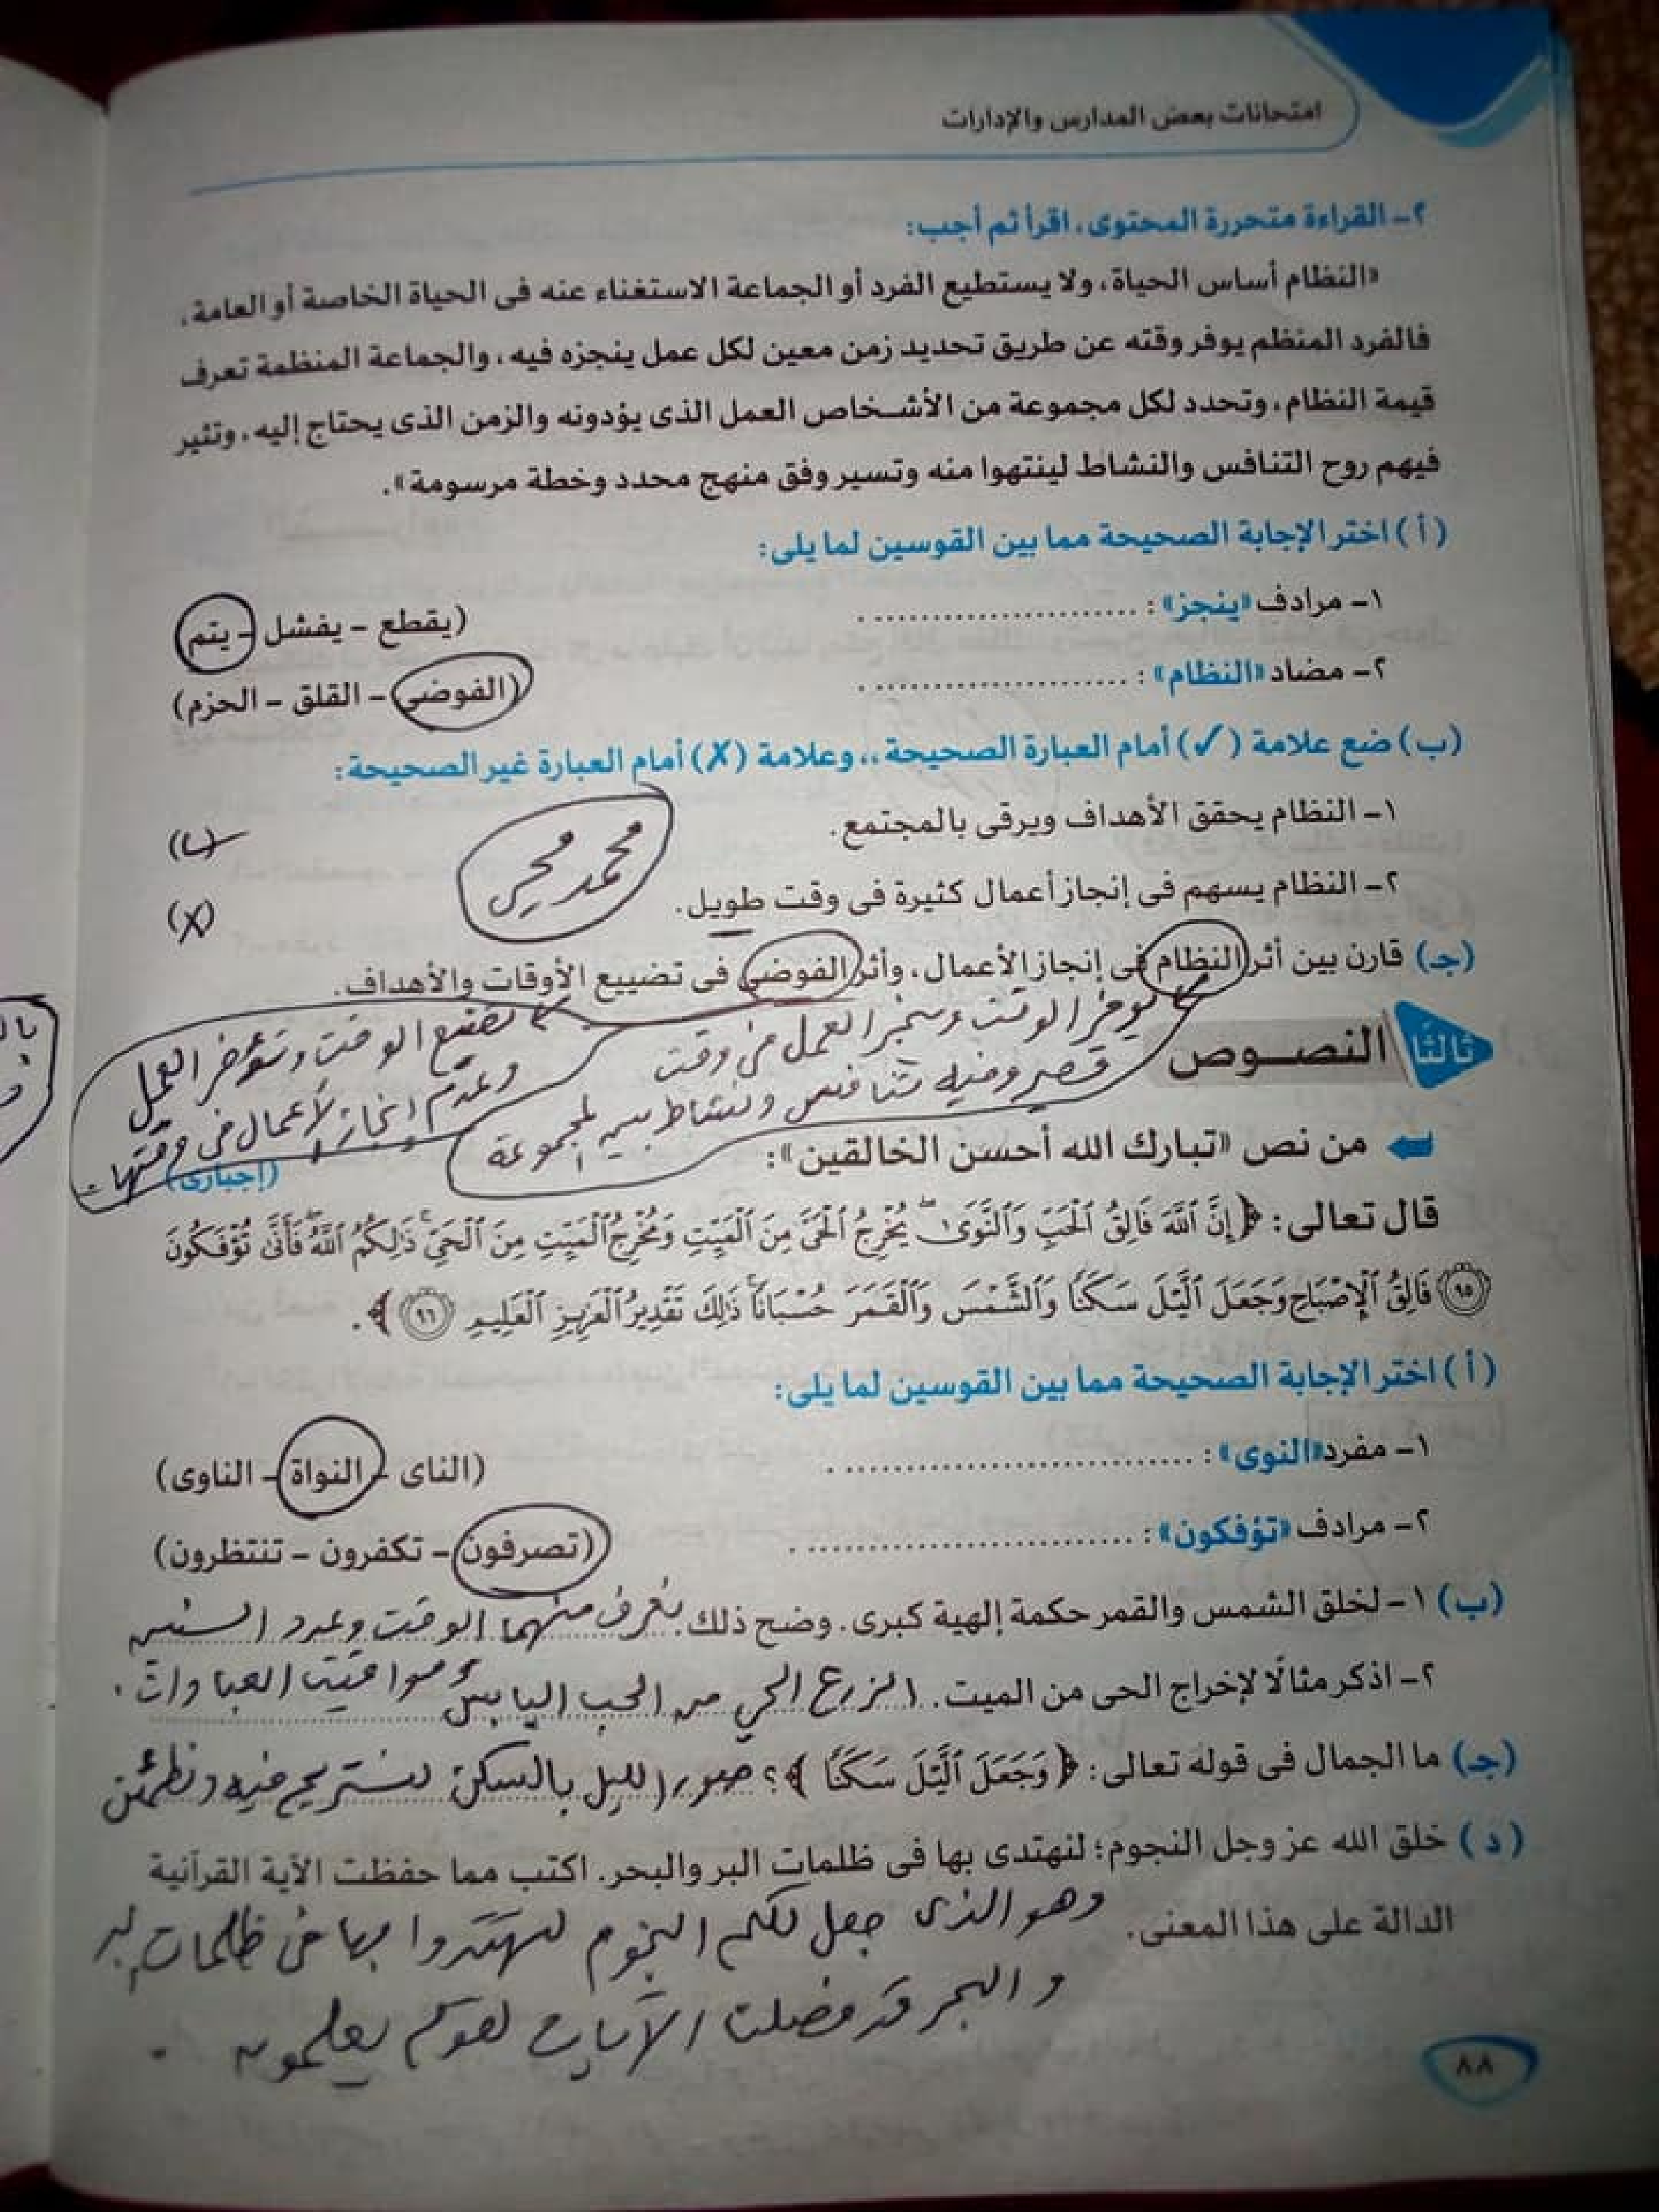 امتحانات بعض المدارس والإدارات
٢- القراءة متحررة المحتوى، اقرأ ثم أجب:
«النظام أساس الحياة، ولا يستطيع الفرد أو الجماعة الاستغناء عنه فى الحياة الخاصة أو العامة،
فالفرد المنظم يوفر وقته عن طريق تحديد زمن معين لكل عمل ينجزه فيه، والجماعة المنظمة تعرف
قيمة النظام، وتحدد لكل مجموعة من الأشخاص العمل الذى يؤدونه والزمن الذى يحتاج إليه، وتثير
فيهم روح التنافس والنشاط لينتهوا منه وتسير وفق منهج محدد وخطة مرسومة».
(أ) اختر الإجابة الصحيحة مما بين القوسين لما يلى:
١- مرادف «ينجز»: .......................... (يقطع - يفشل - يتم)
٢- مضاد «النظام»: .......................... (الفوضى - القلق - الحزم)
(ب) ضع علامة (✓) أمام العبارة الصحيحة،، وعلامة (✗) أمام العبارة غير الصحيحة:
١- النظام يحقق الأهداف ويرقى بالمجتمع. (✓)
٢- النظام يسهم فى إنجاز أعمال كثيرة فى وقت طويل. (✗)
محمد محى
(جـ) قارن بين أثر النظام فى إنجاز الأعمال، وأثر الفوضى فى تضييع الأوقات والأهداف.
يوفر الوقت وينجز العمل فى وقت
قصير وفيه تنافس ونشاط بين المجموعة
تضيع الوقت وتؤخر العمل
وعدم إنجاز الأعمال فى وقتها.
ثالثًا النصوص
من نص «تبارك الله أحسن الخالقين»: (إجبارى)
قال تعالى: ﴿إِنَّ ٱللَّهَ فَالِقُ ٱلْحَبِّ وَٱلنَّوَىٰ ۖ يُخْرِجُ ٱلْحَىَّ مِنَ ٱلْمَيِّتِ وَمُخْرِجُ ٱلْمَيِّتِ مِنَ ٱلْحَىِّ ۚ ذَٰلِكُمُ ٱللَّهُ ۖ فَأَنَّىٰ تُؤْفَكُونَ
٩٥ فَالِقُ ٱلْإِصْبَاحِ وَجَعَلَ ٱلَّيْلَ سَكَنًا وَٱلشَّمْسَ وَٱلْقَمَرَ حُسْبَانًا ۚ ذَٰلِكَ تَقْدِيرُ ٱلْعَزِيزِ ٱلْعَلِيمِ ٩٦﴾.
(أ) اختر الإجابة الصحيحة مما بين القوسين لما يلى:
١- مفرد «النوى»: .......................... (الناى - النواة - الناوى)
٢- مرادف «تؤفكون»: .......................... (تصرفون - تكفرون - تنتظرون)
(ب) ١- لخلق الشمس والقمر حكمة إلهية كبرى. وضح ذلك. يُعرف منهما الوقت وعدد السنين
ومواقيت العبادات.
٢- اذكر مثالًا لإخراج الحى من الميت. الزرع الحي من الحب اليابس
(جـ) ما الجمال فى قوله تعالى: ﴿وَجَعَلَ ٱلَّيْلَ سَكَنًا﴾؟ صور الليل بالسكن نستريح فيه ونطمئن
(د) خلق الله عز وجل النجوم؛ لنهتدى بها فى ظلمات البر والبحر. اكتب مما حفظت الآية القرآنية
الدالة على هذا المعنى. وهو الذى جعل لكم النجوم لتهتدوا بها فى ظلمات البر
والبحر قد فصلنا الآيات لقوم يعلمون.
٨٨